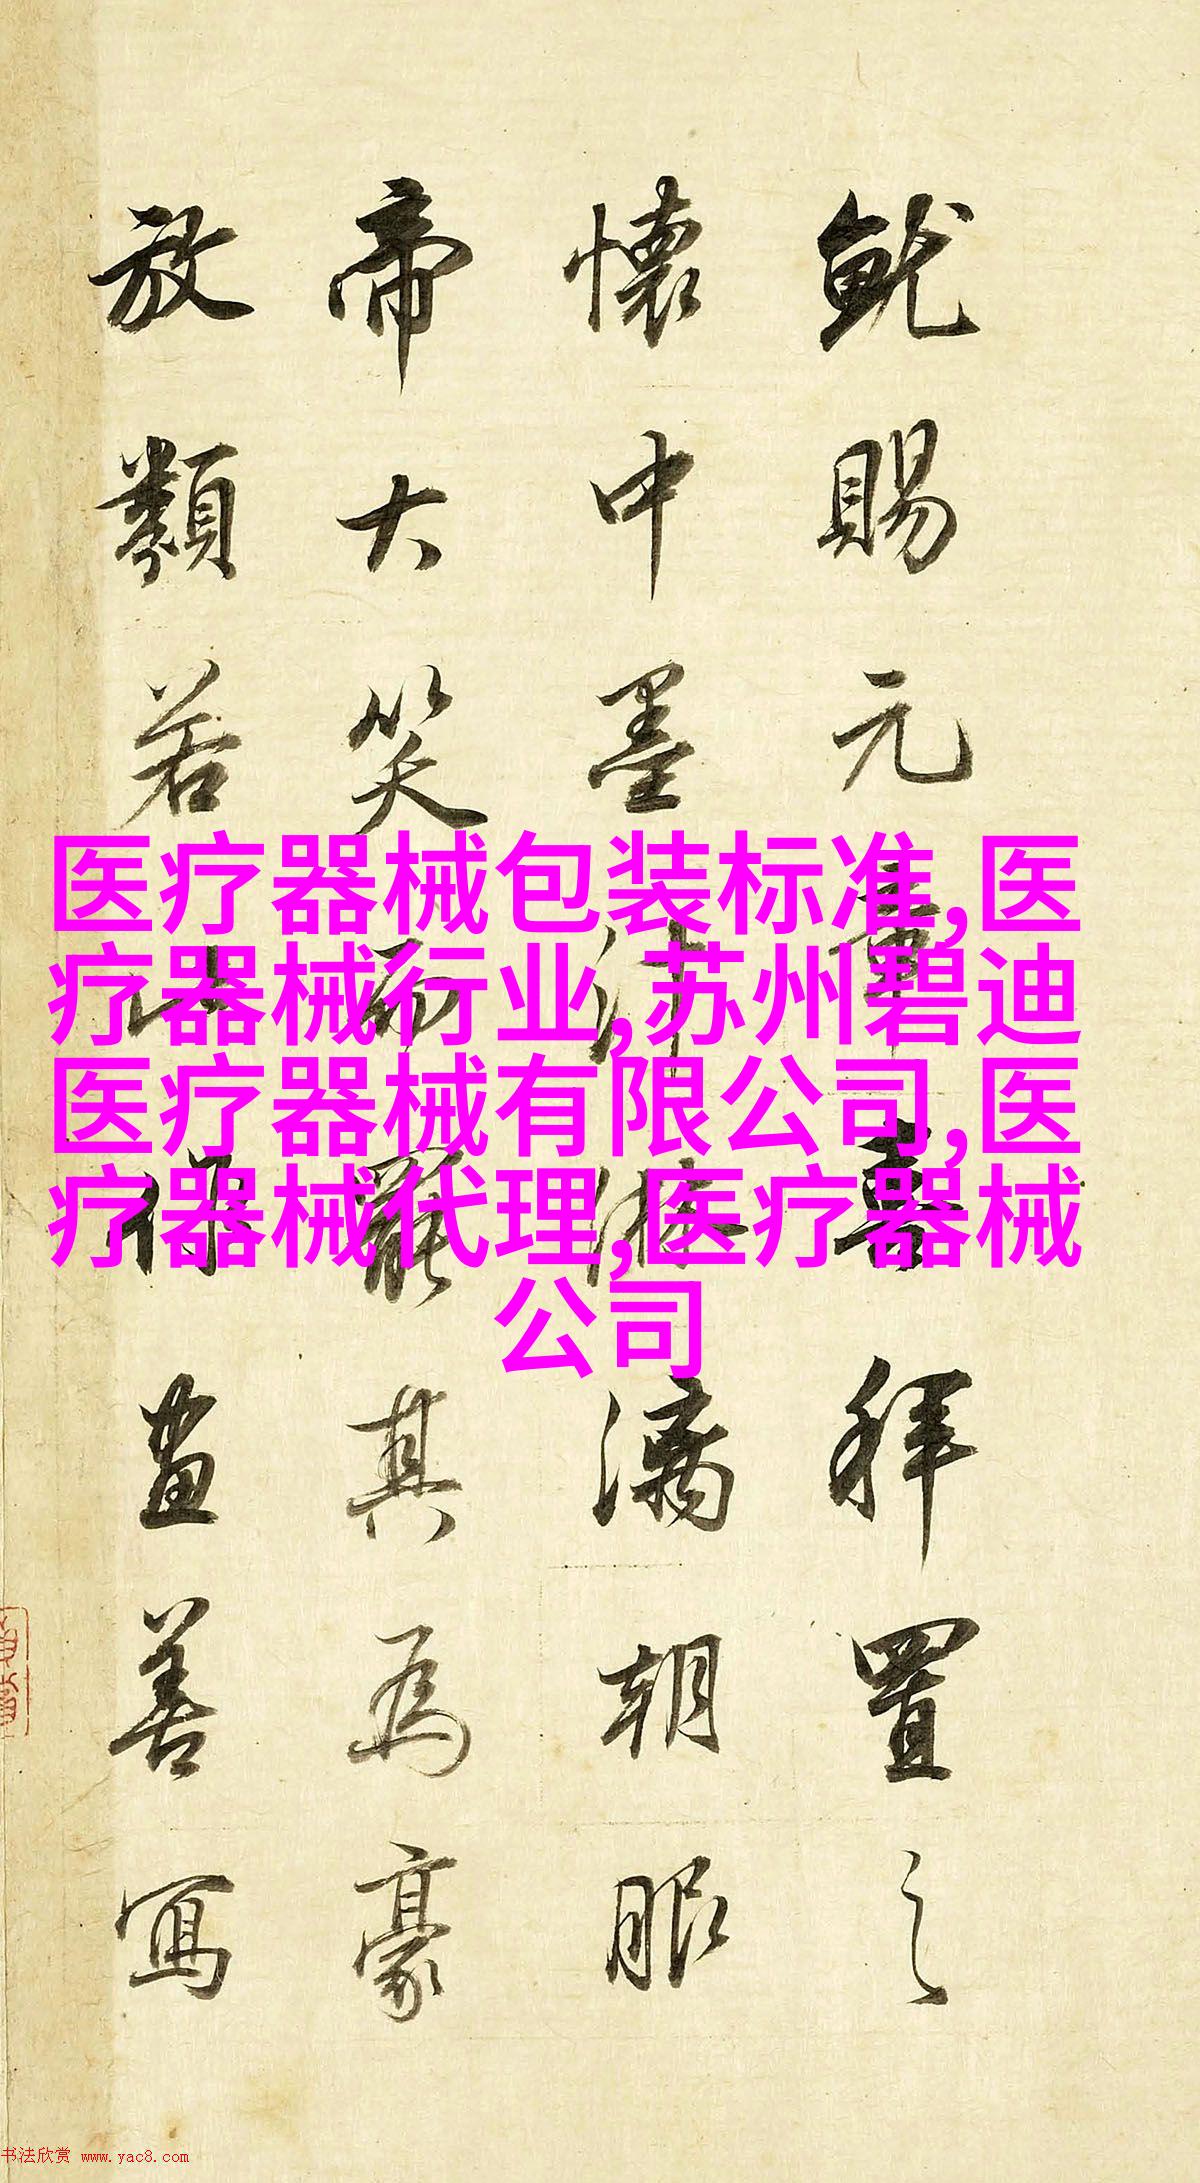 就賜元章喜拜置之
懷中墨汁淋漓朝服
帝大笑而罷其為豪
放類若此畫善寫
医疗器械包装标准,医
疗器械行业,苏州碧迪
医疗器械有限公司,医
疗器械代理,医疗器械
公司
书法欣赏 www.yac8.com